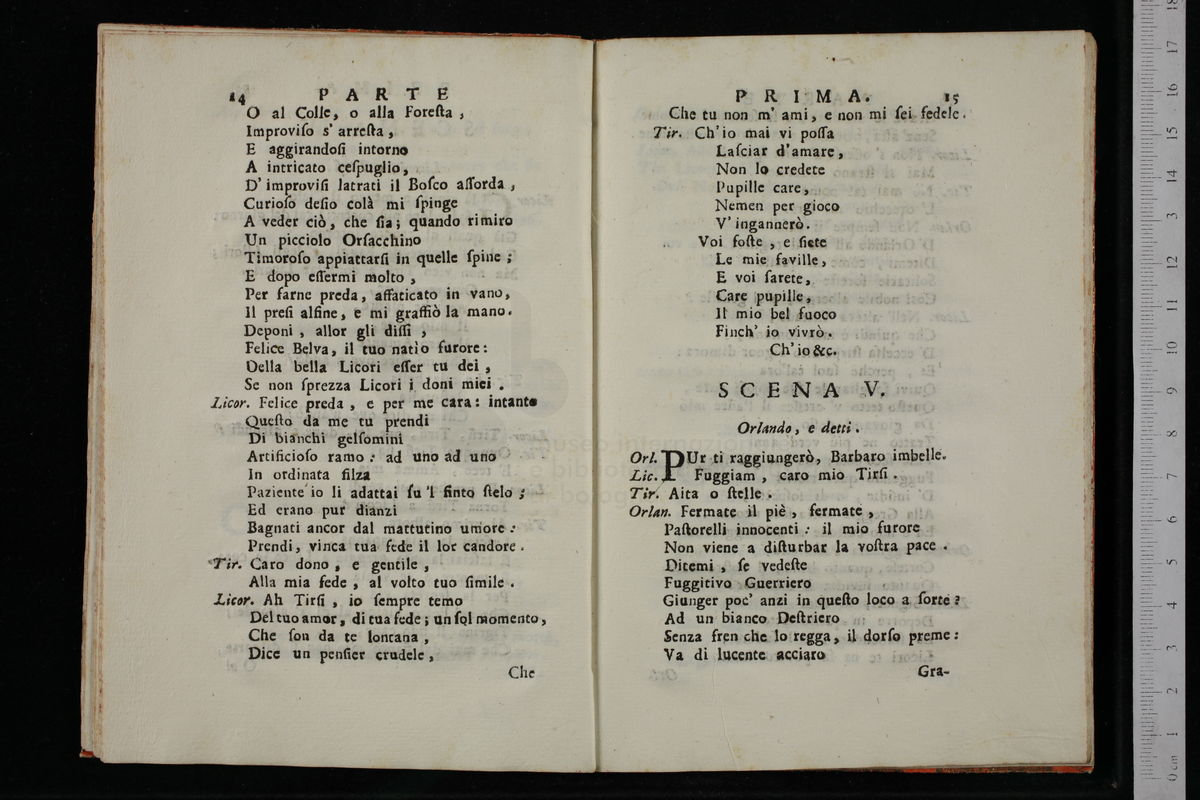 14 PARTE
O al Colle, o alla Foreſta,
Improviſo s' arreſta,
E aggirandoſi intorno
A intricato ceſpuglio,
D' improviſi latrati il Boſco aſſorda,
Curioſo deſio colà mi ſpinge
A veder ciò, che ſia; quando rimiro
Un picciolo Orſacchino
Timoroſo appiattarſi in quelle ſpine;
E dopo eſſermi molto,
Per farne preda, affaticato in vano,
Il preſi alfine, e mi graffiò la mano.
Deponi, allor gli diſſi,
Felice Belva, il tuo natìo furore:
Della bella Licori eſſer tu dei,
Se non ſprezza Licori i doni miei.
Licor. Felice preda, e per me cara: intanto
Queſto da me tu prendi
Di bianchi gelſomini
Artificioſo ramo: ad uno ad uno
In ordinata filza
Paziente io li adattai ſu 'l finto ſtelo;
Ed erano pur dianzi
Bagnati ancor dal mattutino umore:
Prendi, vinca tua fede il lor candore.
Tir. Caro dono, e gentile,
Alla mia fede, al volto tuo ſimile.
Licor. Ah Tirſi, io ſempre temo
Del tuo amor, di tua fede; un ſol momento,
Che ſon da te lontana,
Dice un penſier crudele,
Che
PRIMA. 15
Che tu non m' ami, e non mi ſei fedele.
Tir. Ch'io mai vi poſſa
Laſciar d'amare,
Non lo credete
Pupille care,
Nemen per gioco
V' ingannerò.
Voi foſte, e ſiete
Le mie faville,
E voi ſarete,
Care pupille,
Il mio bel fuoco
Finch' io vivrò.
Ch'io &c.
SCENA V.
Orlando, e detti.
Orl. PUr ti raggiungerò, Barbaro imbelle.
Lic. Fuggiam, caro mio Tirſi.
Tir. Aita o ſtelle.
Orlan. Fermate il piè, fermate,
Paſtorelli innocenti: il mio furore
Non viene a diſturbar la voſtra pace.
Ditemi, ſe vedeſte
Fuggitivo Guerriero
Giunger poc' anzi in queſto loco a ſorte?
Ad un bianco Deſtriero
Senza fren che lo regga, il dorſo preme:
Va di lucente acciaro
Gra-